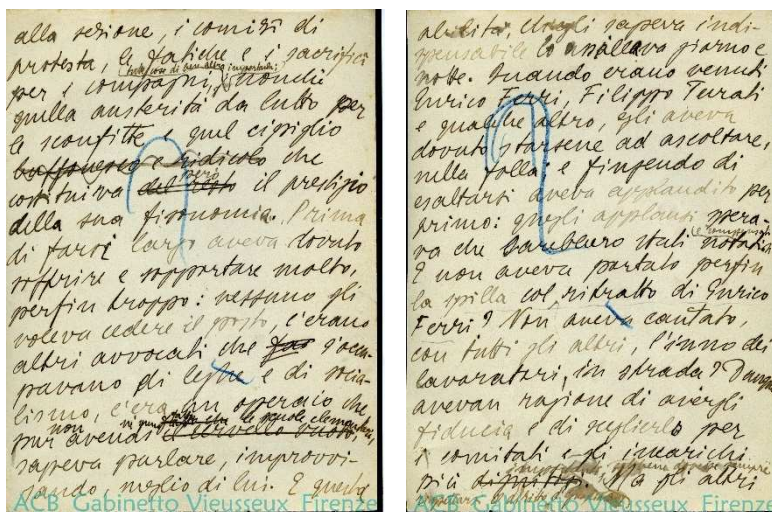 alla sezione, i comizi di
protesta, le fatiche e i sacrifici
per i compagni, nonché
quella austerità da lutto per
le sconfitte e quel cipiglio
buffonesco e ridicolo che
però
costituiva del resto il prestigio
della sua fisonomia. Prima
di farsi largo aveva dovuto
soffrire e sopportare molto,
perfin troppo: nessuno gli
voleva cedere il posto, c'erano
altri avvocati che s'occu-
pavano di leghe e di socia-
lismo, c'era un operaio che
pur non avendo le scuole elementari,
il cervello vuoto,
sapeva parlare, improvvi-
sando, meglio di lui. E questa
abilità, ch'egli sapeva indi-
spensabile lo assillava giorno e
notte. Quando erano venuti
Enrico Ferri, Filippo Turati
e qualche altro, egli aveva
dovuto starsene ad ascoltare,
nella folla; e fingendo di
esaltarsi aveva applaudito per
primo: quegli applausi spera-
va che sarebbero stati notati
E non aveva portato perfin
la spilla col ritratto di Enrico
Ferri? Non aveva cantato,
con tutti gli altri, l'inno dei
lavoratori, in strada? Dunque
avevan ragione di avergli
fiducia e di sceglierlo per
i comitati e gli incarichi
più Ma gli altri
ACB Gabinetto Vieusseux Firenze
ACB Gabinetto Vieusseux Firenze